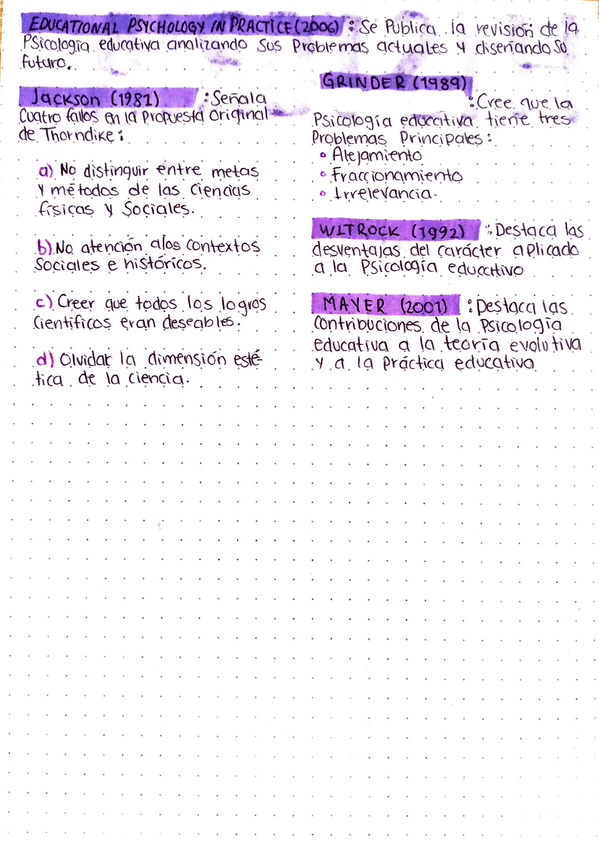 EDUCATIONAL PSYCHOLOGY IN PRACTICE (2006) : Se Publica la revisión de la
Psicología educativa analizando sus Problemas actuales y diseñando su
futuro.
Jackson (1981) : Señala
Cuatro fallos en la Propuesta Original
de Thorndike :
a) No distinguir entre metas
y métodos de las ciencias
físicas y Sociales.
b) No atención a los contextos
Sociales e históricos.
c) Creer que todos los logros
Científicos eran deseables.
d) Olvidar la dimensión esté
tica de la ciencia.
GRINDER (1989)
: Cree que la
Psicología educativa tiene tres
Problemas Principales :
• Alejamiento
• Fraccionamiento
• Irrelevancia.
WITROCK (1992) : Destaca las
desventajas del carácter aplicado
a la Psicología educativo
MAYER (2001) : Destaca las
Contribuciones de la Psicología
educativa a la teoría evolutiva
y a la Práctica educativa